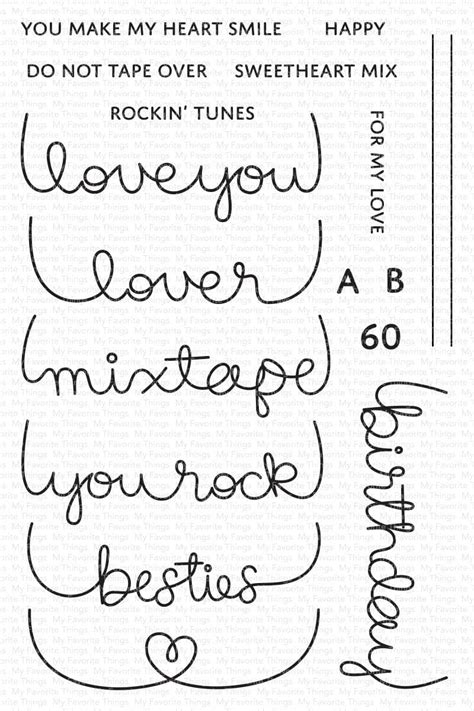 YOU MAKE MY HEART SMILE
HAPPY
DO NOT TAPE OVER
SWEETHEART MIX
ROCKIN' TUNES
FOR MY LOVE
love you
lover
A B
60
mixtape
birthday
you rock
besties
My Favorite Things